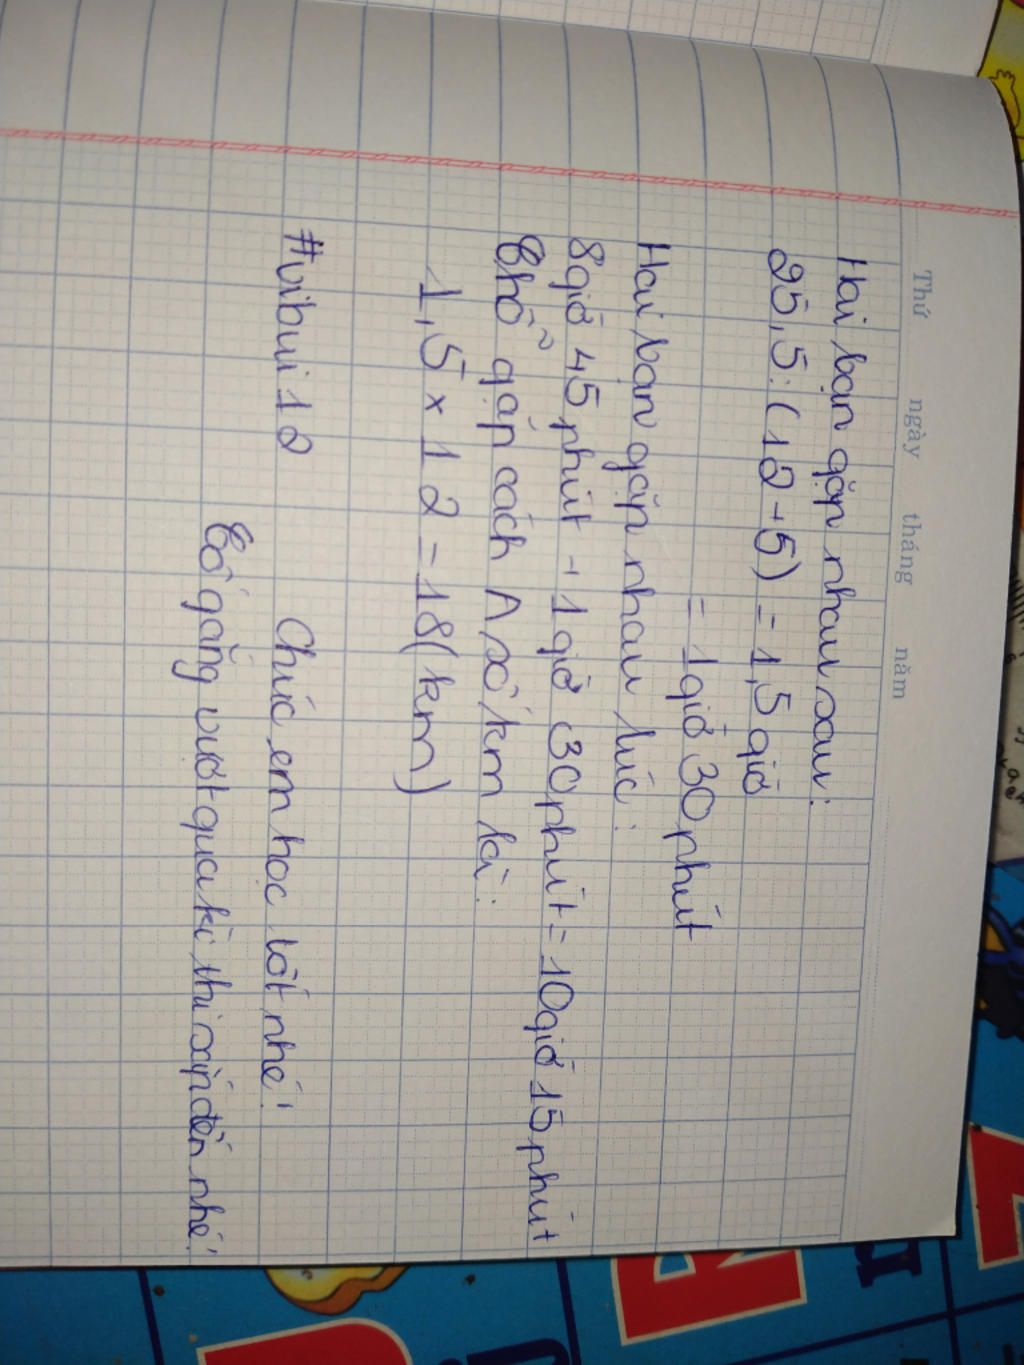 Thứ ngày tháng năm
Hai bạn gặp nhau sau:
25,5:(12+5) = 1,5 giờ
= 1 giờ 30 phút
Hai bạn gặp nhau lúc:
8 giờ 45 phút + 1 giờ 30 phút = 10 giờ 15 phút
Chỗ gặp cách A số km là:
1,5 x 12 = 18(km)
#vibui12
Chúc em học tốt nhé!
Cố gắng vượt qua kì thi sắp đến nhé!